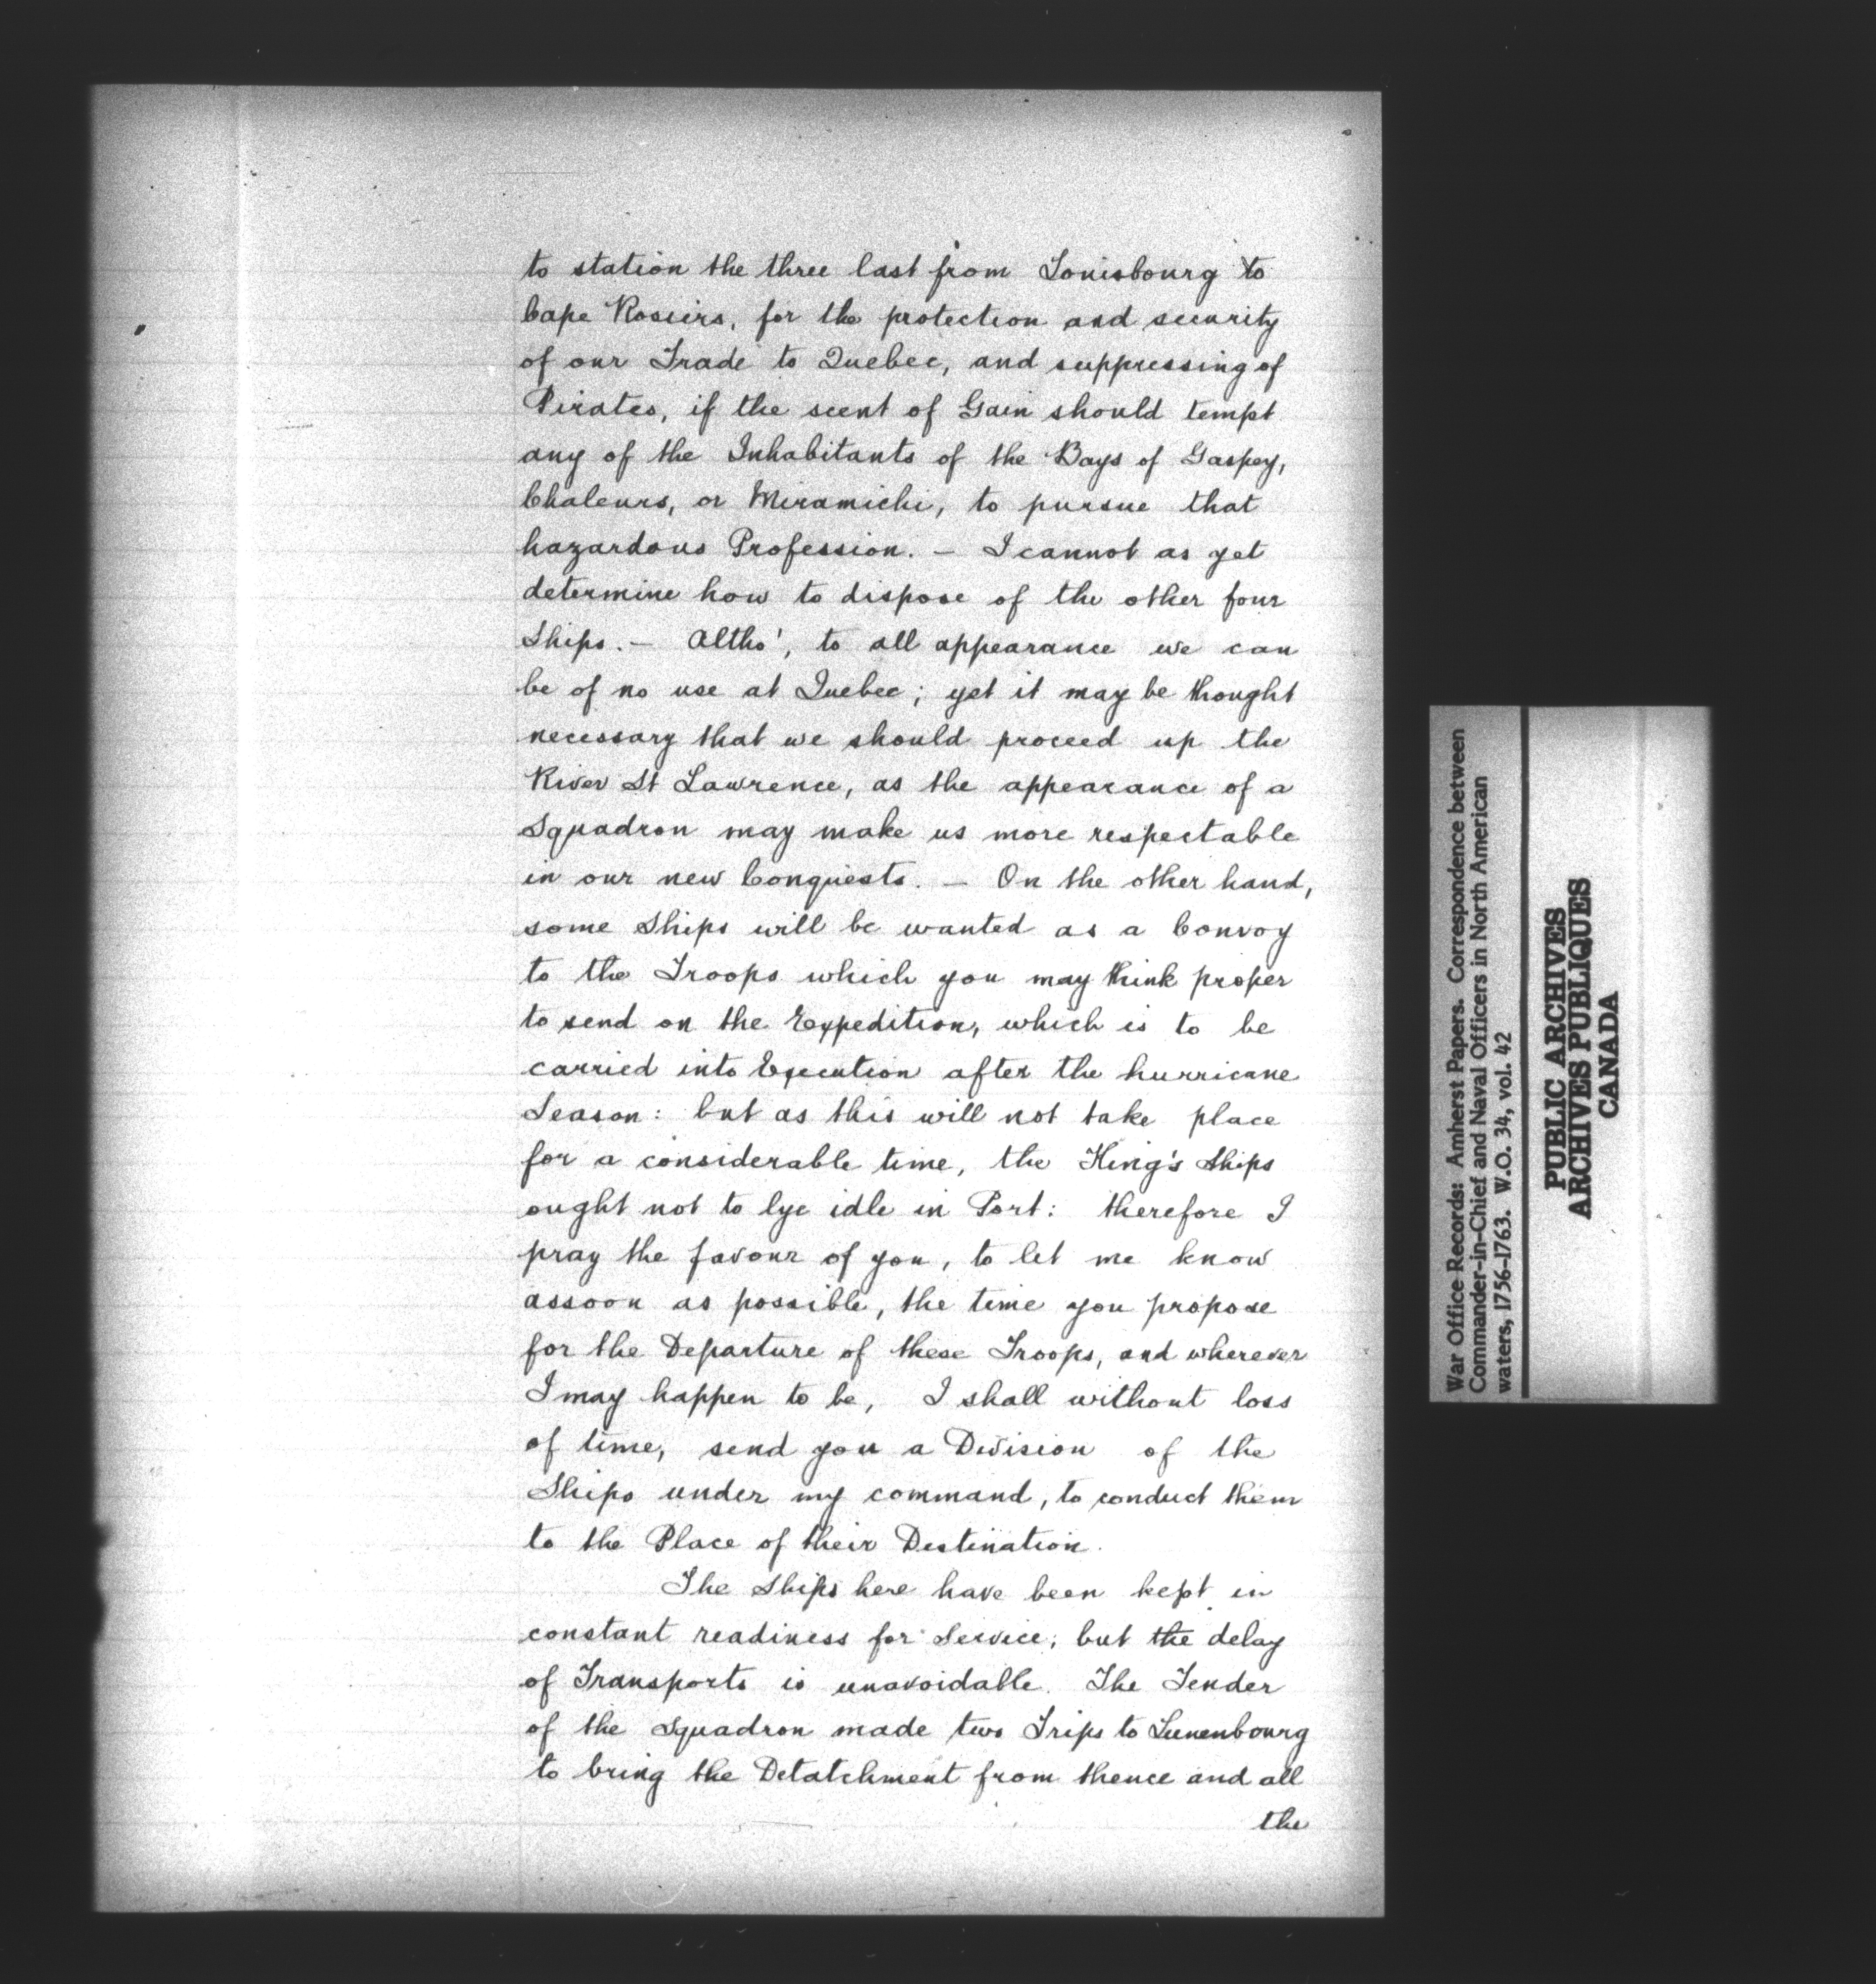 to station the three last from Louisbourg to
Cape Rosiers, for the protection and security
of our Trade to Quebec, and suppressing of
Pirates, if the scent of Gain should tempt
any of the Inhabitants of the Bays of Gaspey,
Chaleurs, or Miramichi, to pursue that
hazardous Profession. — I cannot as yet
determine how to dispose of the other four
Ships. — Altho', to all appearance we can
be of no use at Quebec; yet it may be thought
necessary that we should proceed up the
River St Lawrence, as the appearance of a
Squadron may make us more respectable
in our new Conquests. — On the other hand,
some Ships will be wanted as a Convoy
to the Troops which you may think proper
to send on the Expedition, which is to be
carried into Execution after the hurricane
Season: but as this will not take place
for a considerable time, the King's Ships
ought not to lye idle in Port: therefore I
pray the favour of you, to let me know
assoon as possible, the time you propose
for the Departure of these Troops, and wherever
I may happen to be, I shall without loss
of time, send you a Division of the
Ships under my command, to conduct them
to the Place of their Destination.
The Ships here have been kept in
constant readiness for Service; but the delay
of Transports is unavoidable. The Tender
of the Squadron made two Trips to Lunenbourg
to bring the Detatchment from thence and all
the
War Office Records: Amherst Papers. Correspondence between
Commander-in-Chief and Naval Officers in North American
waters, 1756-1763. W.O. 34, vol. 42
PUBLIC ARCHIVES
ARCHIVES PUBLIQUES
CANADA